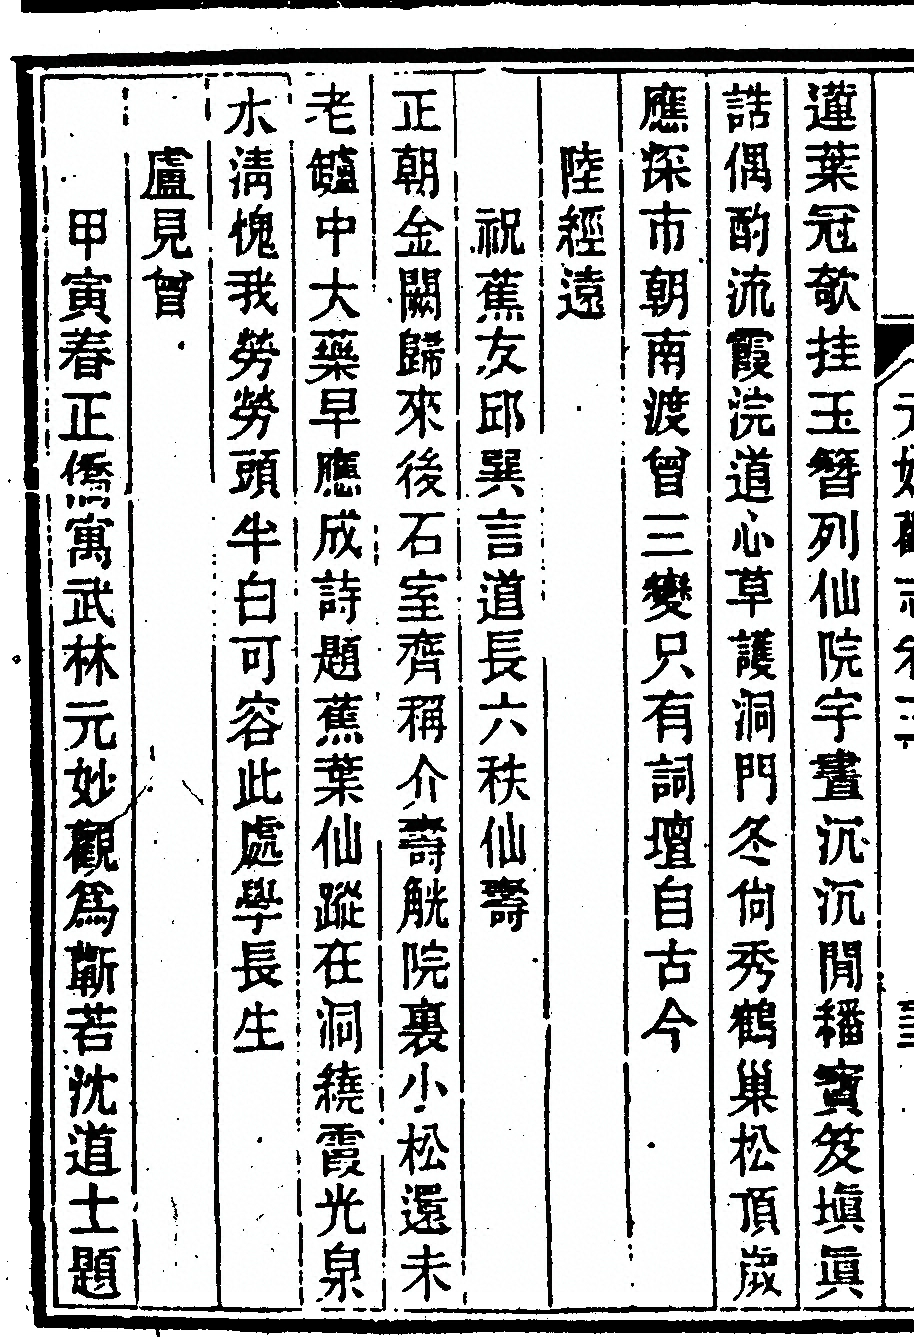 蓮葉冠欹挂玉簪列仙院宇晝沉沉閒繙寶笈塡眞
誥偶酌流霞浣道心草護洞門冬尙秀鶴巢松頂歲
應深市朝南渡曾三變只有詞壇自古今
陸經遠
祝蕉友邱巽言道長六秩仙壽
正朝金闕歸來後石室齊稱介壽觥院裏小松還未
老罏中大藥早應成詩題蕉葉仙蹤在洞繞霞光泉
水淸愧我勞勞頭半白可容此處學長生
盧見曾
甲寅春正僑寓武林元妙觀爲蘄若沈道士題
元妙觀志卷三